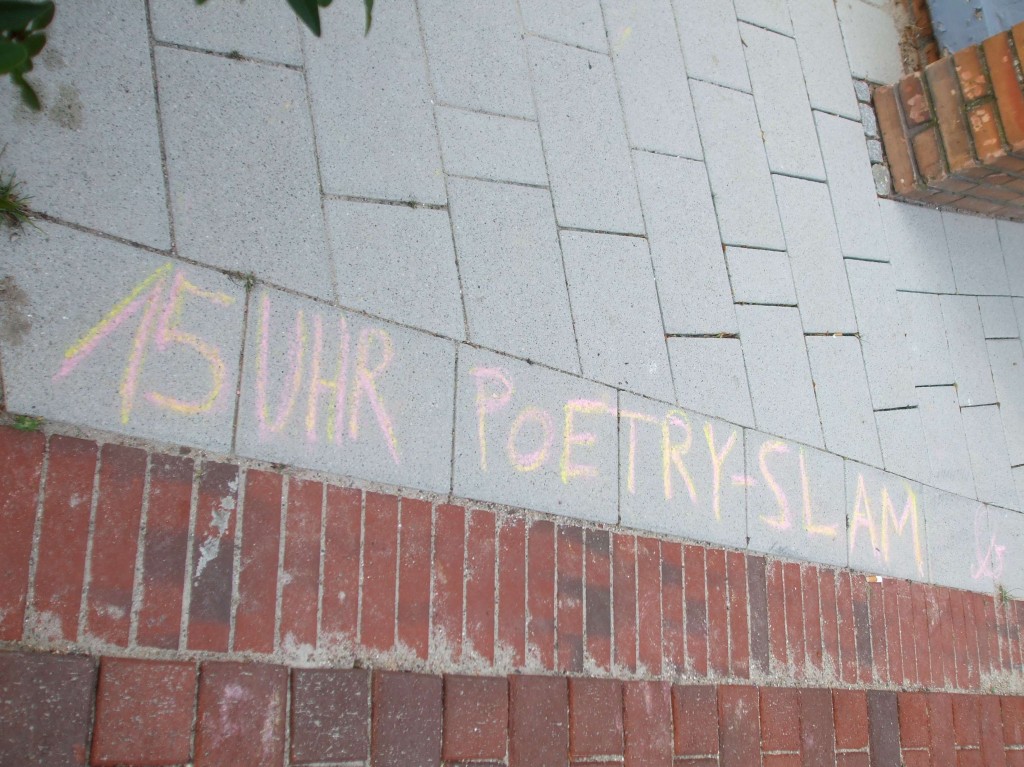 15 UHR POETRY-SLAM &